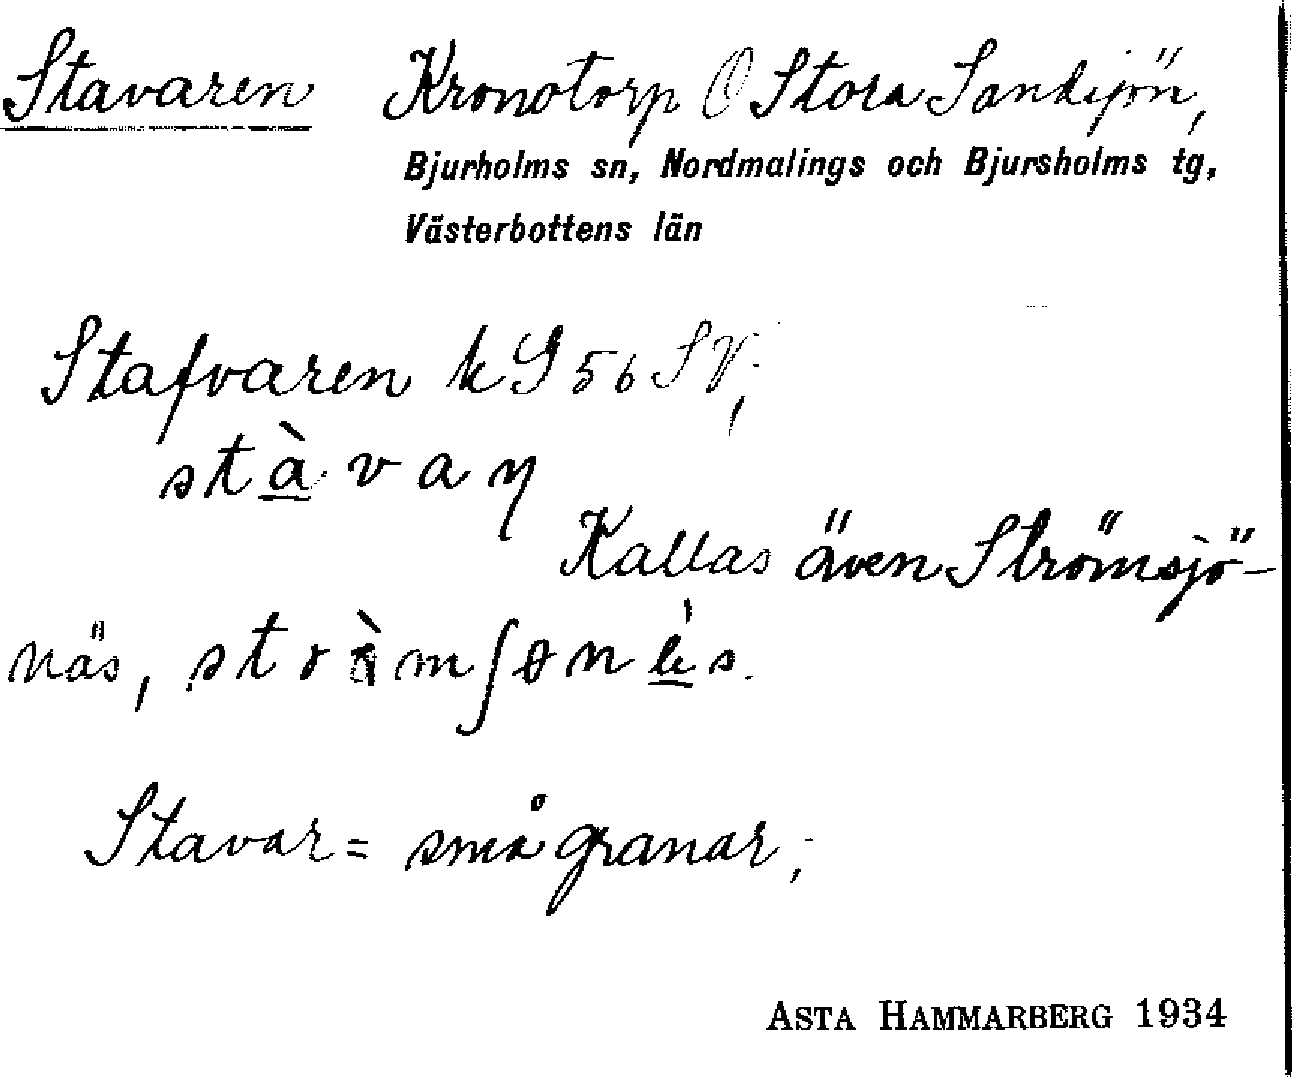 Stavaren Kronotorp O Stora Sandsjön,
Bjurholms sn, Nordmalings och Bjursholms tg,
Västerbottens län
Stafvaren k G 56 SV;
stàvaŋ
Kallas även Strömsjö-
näs,
Stavar = små granar;
ASTA HAMMARBERG 1934